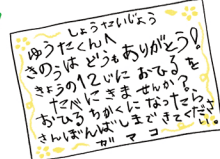 しょうたいじょう
ゆうたくんへ
きのうは どうもありがとう!
きょうの12じに おひるを
たべにきませんか?
おひるちかくになったら、
さんばんばしまできてください。
ガマコ